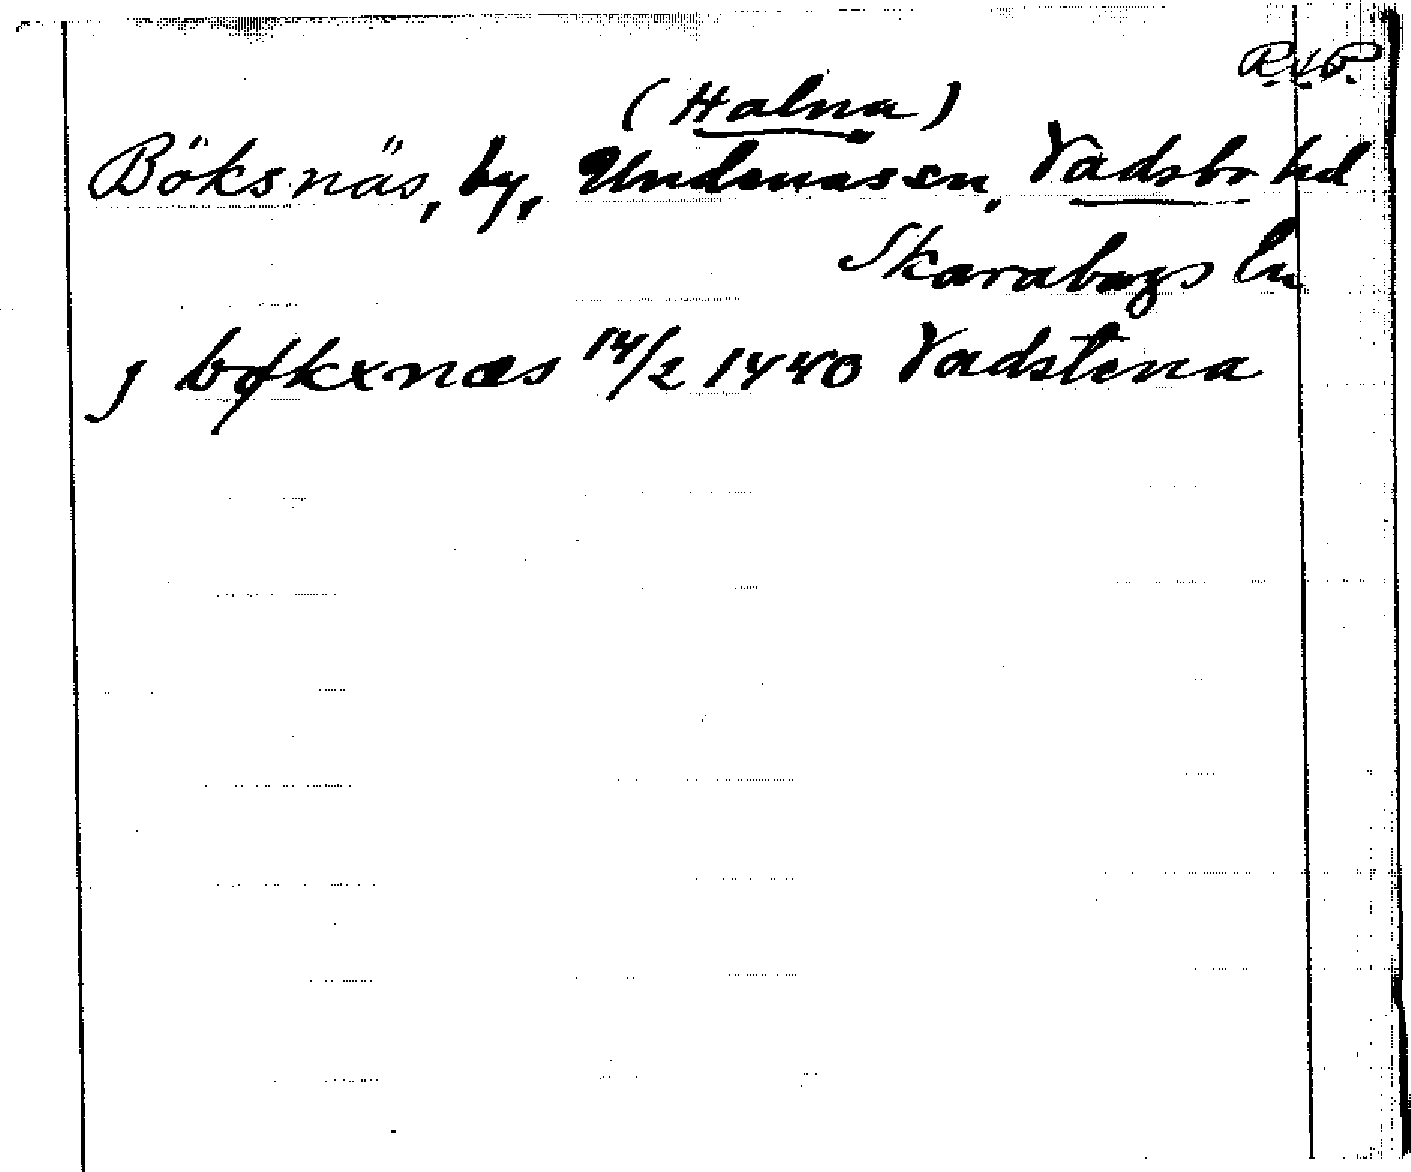 R.A.P.
(Halna)
Böksnäs, by, Undenäs sn, Vadsbo hd
Skaraborgs ln
j bøkxnæs 14/2 1440 Vadstena